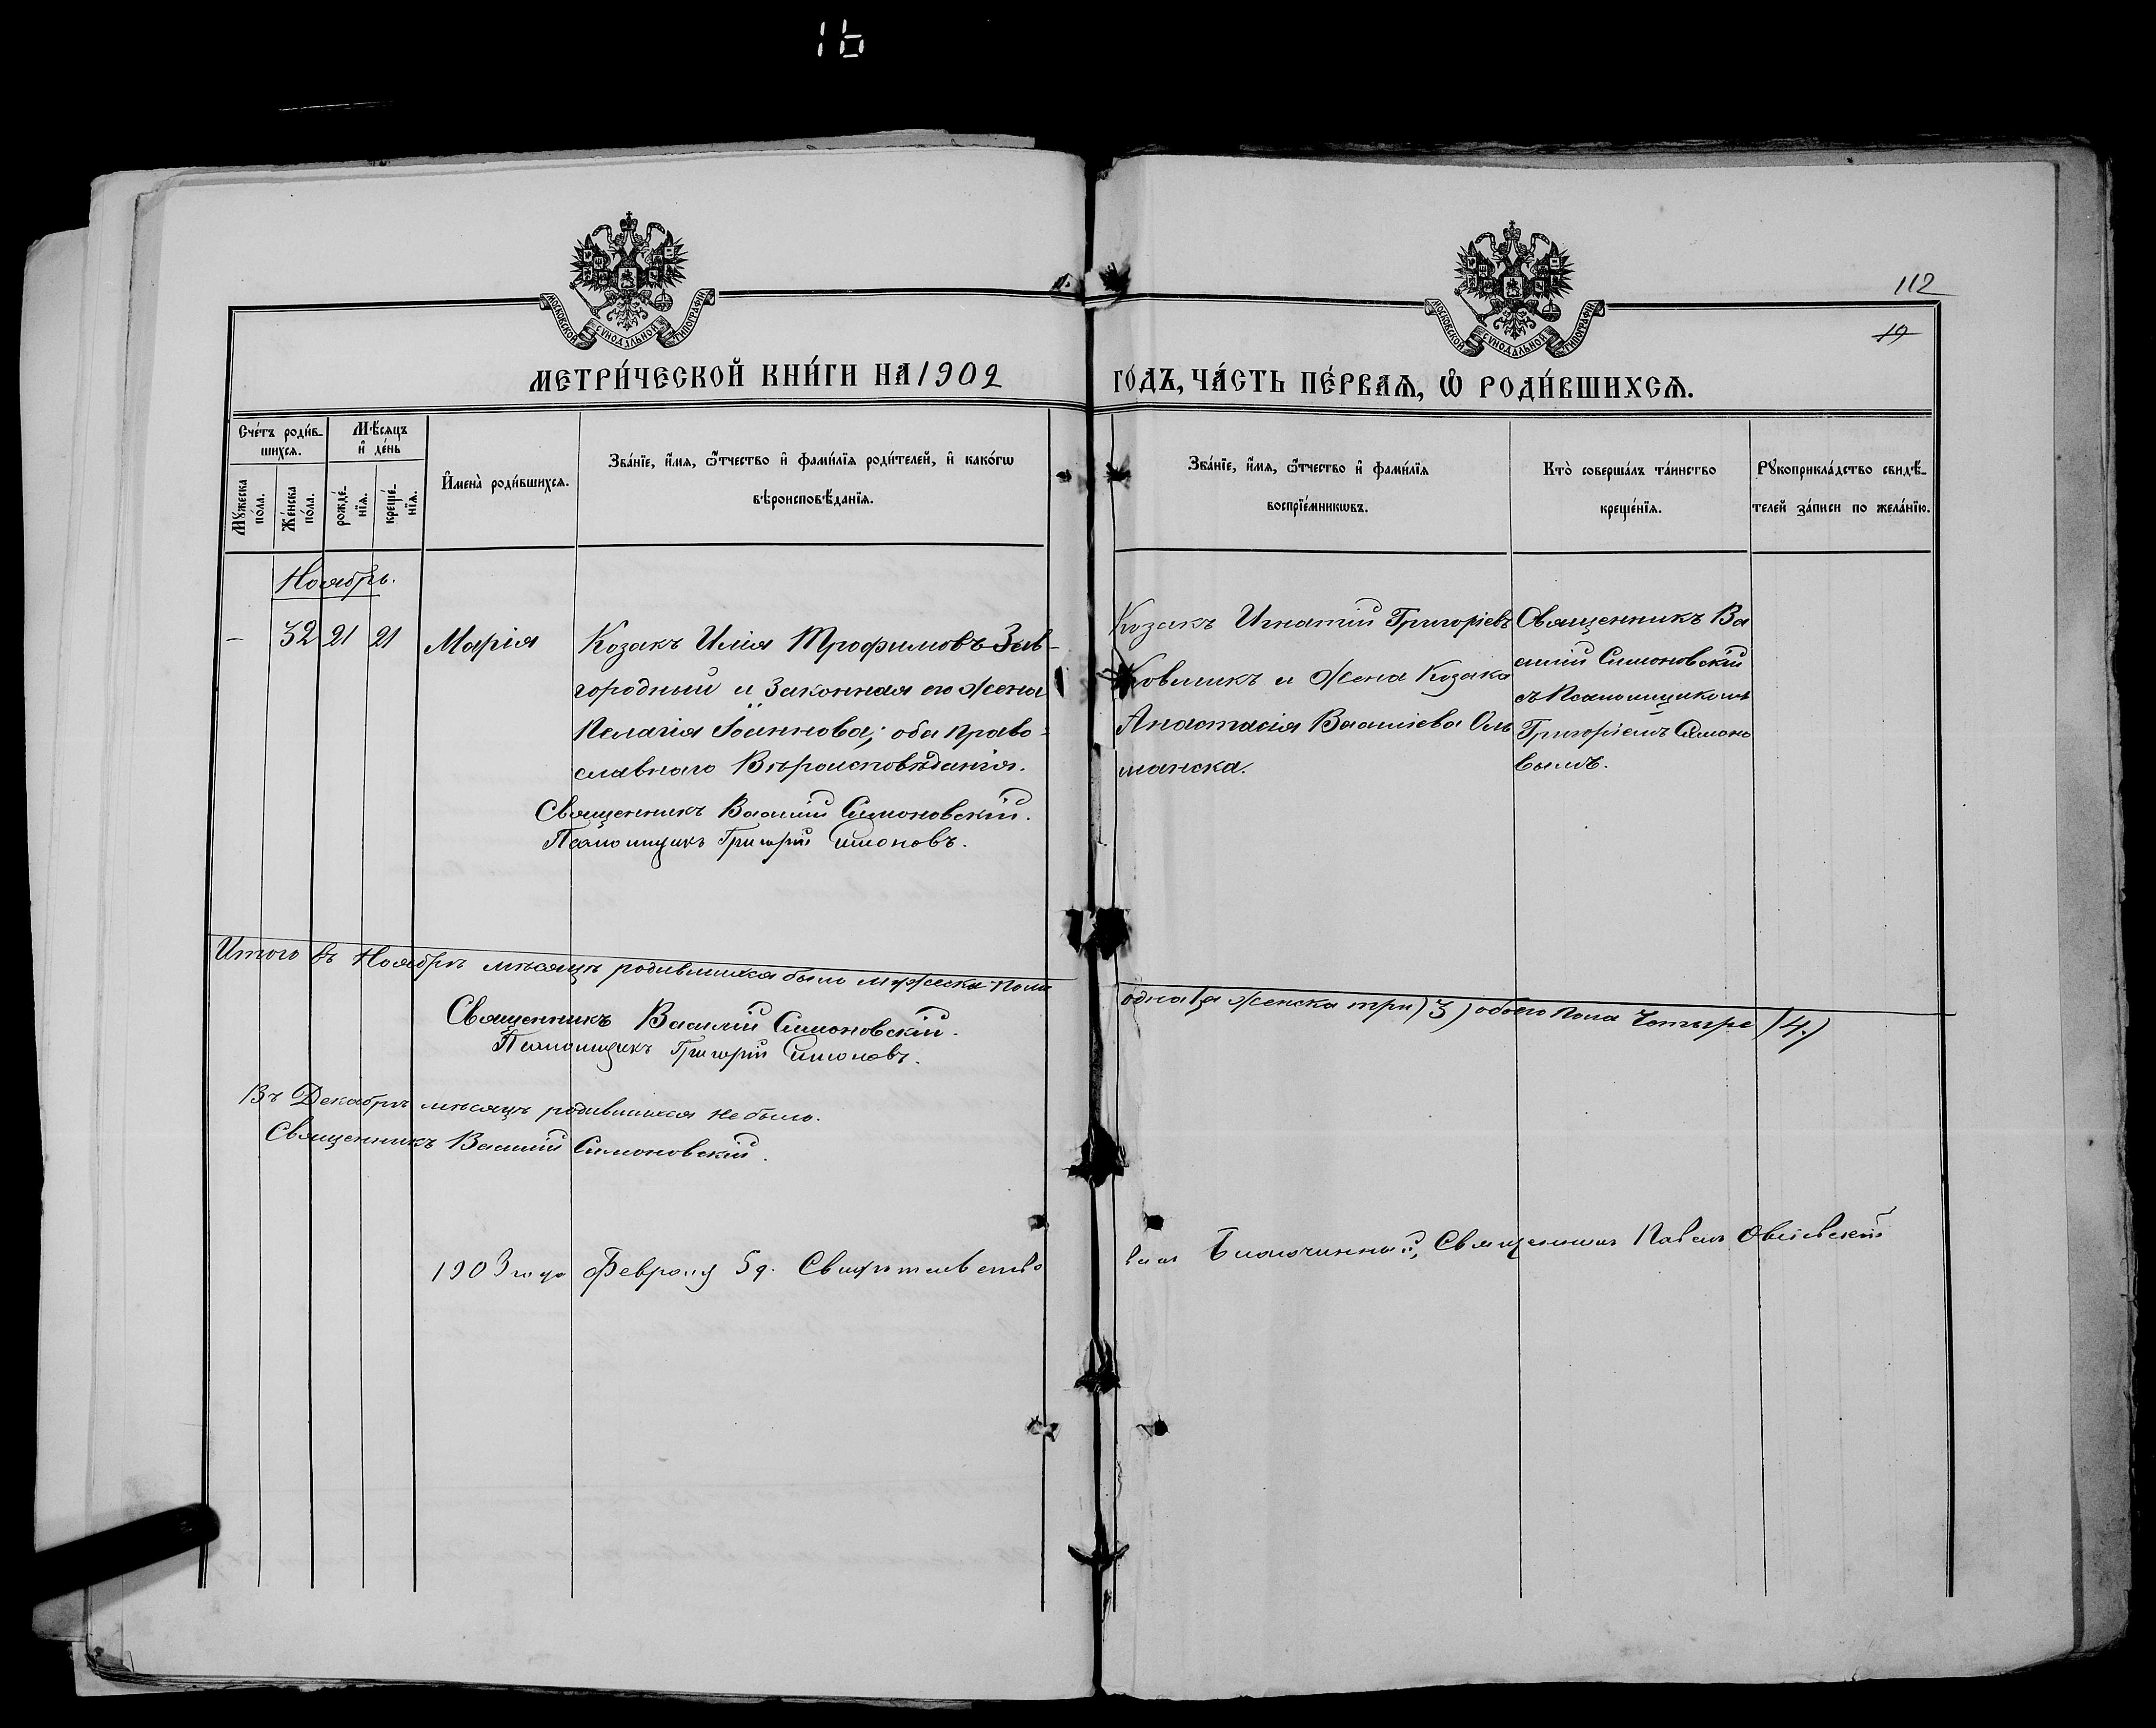 16
112
19
МОСКОВСКОЙ СѴНОДАЛЬНОЙ ТИПОГРАФІИ
МОСКОВСКОЙ СѴНОДАЛЬНОЙ ТИПОГРАФІИ
МЕТРИ́ЧЕСКОЙ КНИ́ГИ НА 1902
ГО́ДЪ, ЧА́СТЬ ПЕ́РВАѦ, Ѡ҆ РОДИ́ВШИХСѦ.
Сче́тъ роди́в-
шихсѧ.
Мѣ́сѧцъ
и҆ де́нь
Мꙋ́жеска
по́ла.
Же́нска
по́ла.
рожде́-
нїѧ.
креще́-
нїѧ.
И҆мена̀ роди́вшихсѧ.
Зва́нїе, и҆́мѧ, ѻ҆́тчество и҆ фами́лїѧ роди́телей, и҆ како́гѡ
вѣроисповѣ́данїѧ.
Зва́нїе, и҆́мѧ, ѻ҆́тчество и҆ фами́лїѧ
воспрїе́мникѡвъ.
Кто̀ соверша́лъ та́инство
креще́нїѧ.
Рꙋкоприкла́дство свидѣ́-
телей за́писи по жела́нїю.
Ноябрь.
- 32 21 21 Марія
Козакъ Илія Трофимовъ Зав-
городный и законная его жена
Пелагія Іоаннова; оба право-
славнаго Вѣроисповѣданія.
Священникъ Василій Симоновскій.
Псаломщикъ Григорій Симоновъ.
Козакъ Игнатій Григоріевъ
Ковшикъ и жена Козака
Анастасія Василіева Оль
шанска.
Священникъ Ва
силій Симоновскій
съ Псаломщикомъ
Григоріемъ Симоно
вымъ.
Итого въ Ноябрѣ мѣсяцѣ родившихся было мужеска пола
одна 1я женска три) 3) обоего пола Четыре (4.)
Священникъ Василій Симоновскій.
Псаломщикъ Григорій Симоновъ.
Въ Декабрѣ мѣсяцѣ родившихся не было.
Священникъ Василій Симоновскій.
1903 года Февраля 5 д. Свидѣтельство
валъ Благочинный, Священникъ Павелъ